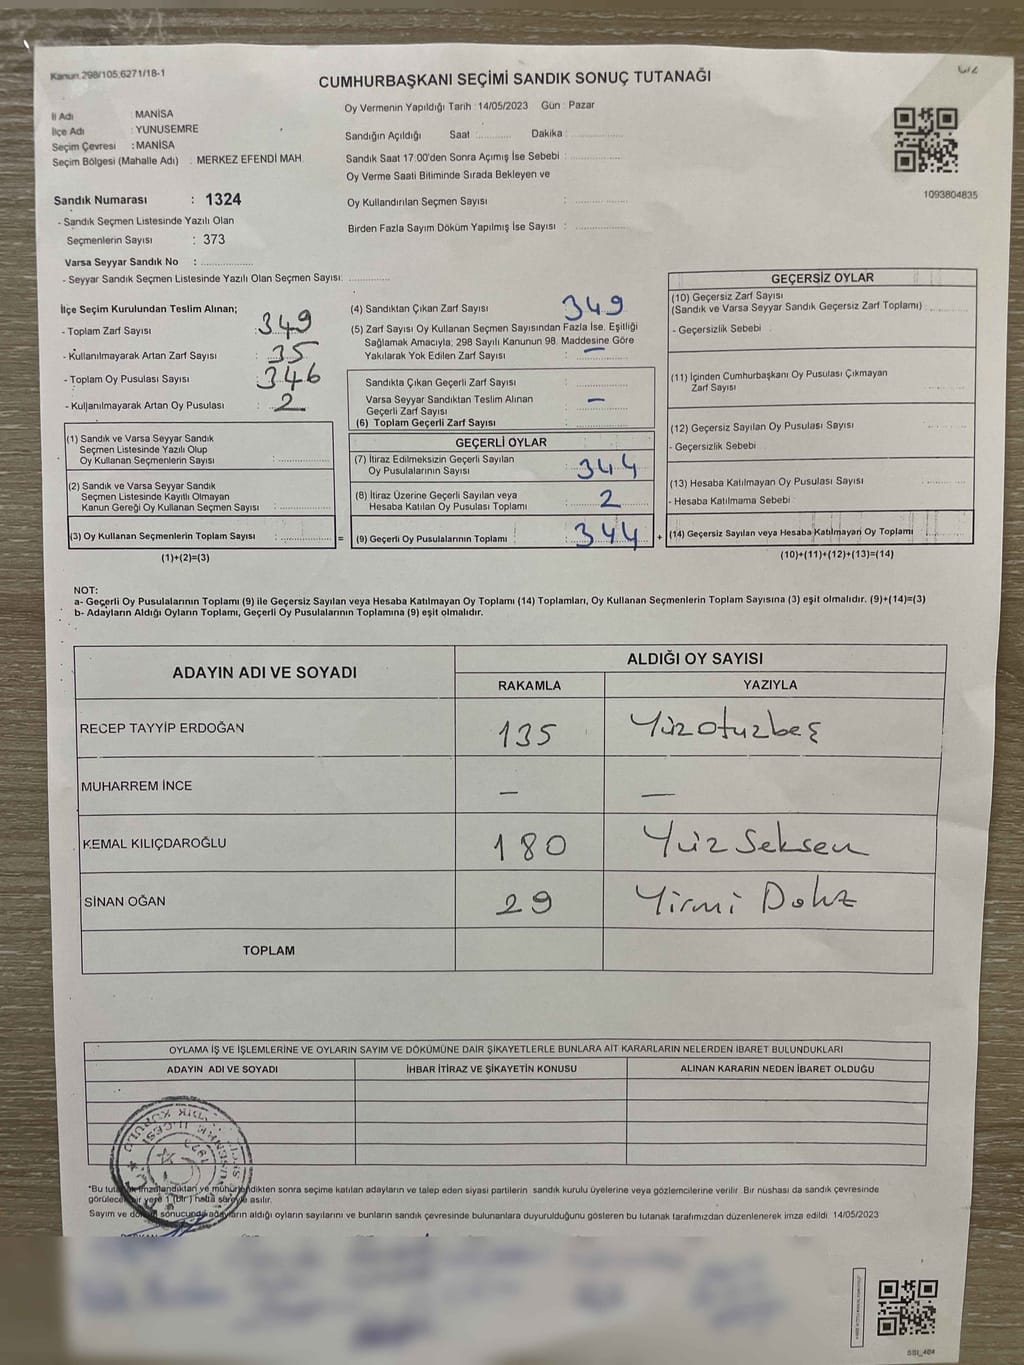 Kanun.298/105,6271/18-1
CUMHURBAŞKANI SEÇİMİ SANDIK SONUÇ TUTANAĞI
İl Adı : MANİSA
İlçe Adı : YUNUSEMRE
Seçim Çevresi : MANİSA
Seçim Bölgesi (Mahalle Adı) : MERKEZ EFENDİ MAH.
Sandık Numarası : 1324
- Sandık Seçmen Listesinde Yazılı Olan
Seçmenlerin Sayısı : 373
Varsa Seyyar Sandık No :
- Seyyar Sandık Seçmen Listesinde Yazılı Olan Seçmen Sayısı:
Oy Vermenin Yapıldığı Tarih : 14/05/2023 Gün : Pazar
Sandığın Açıldığı Saat : Dakika :
Sandık Saat 17:00'den Sonra Açımış İse Sebebi :
Oy Verme Saati Bitiminde Sırada Bekleyen ve
Oy Kullandırılan Seçmen Sayısı :
Birden Fazla Sayım Döküm Yapılmış İse Sayısı :
1093804835
İlçe Seçim Kurulundan Teslim Alınan;
- Toplam Zarf Sayısı : 349
- Kullanılmayarak Artan Zarf Sayısı : 35
- Toplam Oy Pusulası Sayısı : 346
- Kullanılmayarak Artan Oy Pusulası : 2
(1) Sandık ve Varsa Seyyar Sandık
Seçmen Listesinde Yazılı Olup
Oy Kullanan Seçmenlerin Sayısı :
(2) Sandık ve Varsa Seyyar Sandık
Seçmen Listesinde Kayıtlı Olmayan
Kanun Gereği Oy Kullanan Seçmen Sayısı :
(3) Oy Kullanan Seçmenlerin Toplam Sayısı :
(1)+(2)=(3)
=
(4) Sandıktan Çıkan Zarf Sayısı 349
(5) Zarf Sayısı Oy Kullanan Seçmen Sayısından Fazla İse, Eşitliği
Sağlamak Amacıyla; 298 Sayılı Kanunun 98. Maddesine Göre
Yakılarak Yok Edilen Zarf Sayısı : —
Sandıkta Çıkan Geçerli Zarf Sayısı :
Varsa Seyyar Sandıktan Teslim Alınan
Geçerli Zarf Sayısı : —
(6) Toplam Geçerli Zarf Sayısı :
GEÇERLİ OYLAR
(7) İtiraz Edilmeksizin Geçerli Sayılan
Oy Pusulalarının Sayısı : 344
(8) İtiraz Üzerine Geçerli Sayılan veya
Hesaba Katılan Oy Pusulası Toplamı : 2
(9) Geçerli Oy Pusulalarının Toplamı : 344
+
GEÇERSİZ OYLAR
(10) Geçersiz Zarf Sayısı
(Sandık ve Varsa Seyyar Sandık Geçersiz Zarf Toplamı) :
- Geçersizlik Sebebi :
(11) İçinden Cumhurbaşkanı Oy Pusulası Çıkmayan
Zarf Sayısı
(12) Geçersiz Sayılan Oy Pusulası Sayısı :
- Geçersizlik Sebebi :
(13) Hesaba Katılmayan Oy Pusulası Sayısı :
- Hesaba Katılmama Sebebi :
(14) Geçersiz Sayılan veya Hesaba Katılmayan Oy Toplamı :
(10)+(11)+(12)+(13)=(14)
NOT:
a- Geçerli Oy Pusulalarının Toplamı (9) ile Geçersiz Sayılan veya Hesaba Katılmayan Oy Toplamı (14) Toplamları, Oy Kullanan Seçmenlerin Toplam Sayısına (3) eşit olmalıdır. (9)+(14)=(3)
b- Adayların Aldığı Oyların Toplamı, Geçerli Oy Pusulalarının Toplamına (9) eşit olmalıdır.
ADAYIN ADI VE SOYADI
ALDIĞI OY SAYISI
RAKAMLA YAZIYLA
RECEP TAYYİP ERDOĞAN 135 Yüzotuzbeş
MUHARREM İNCE — —
KEMAL KILIÇDAROĞLU 180 Yüz Seksen
SİNAN OĞAN 29 Yirmi Dokz
TOPLAM
OYLAMA İŞ VE İŞLEMLERİNE VE OYLARIN SAYIM VE DÖKÜMÜNE DAİR ŞİKAYETLERLE BUNLARA AİT KARARLARIN NELERDEN İBARET BULUNDUKLARI
ADAYIN ADI VE SOYADI İHBAR İTİRAZ VE ŞİKAYETİN KONUSU ALINAN KARARIN NEDEN İBARET OLDUĞU
*Bu imzalandıktan ve mühürlendikten sonra seçime katılan adayların ve talep eden siyasi partilerin sandık kurulu üyelerine veya gözlemcilerine verilir. Bir nüshası da sandık çevresinde
görülecek bir yere 1 (bir) hafta süreyle asılır.
Sayım ve döküm sonucunda adayların aldığı oyların sayılarını ve bunların sandık çevresinde bulunanlara duyurulduğunu gösteren bu tutanak tarafımızdan düzenlenerek imza edildi. 14/05/2023
SSI_404